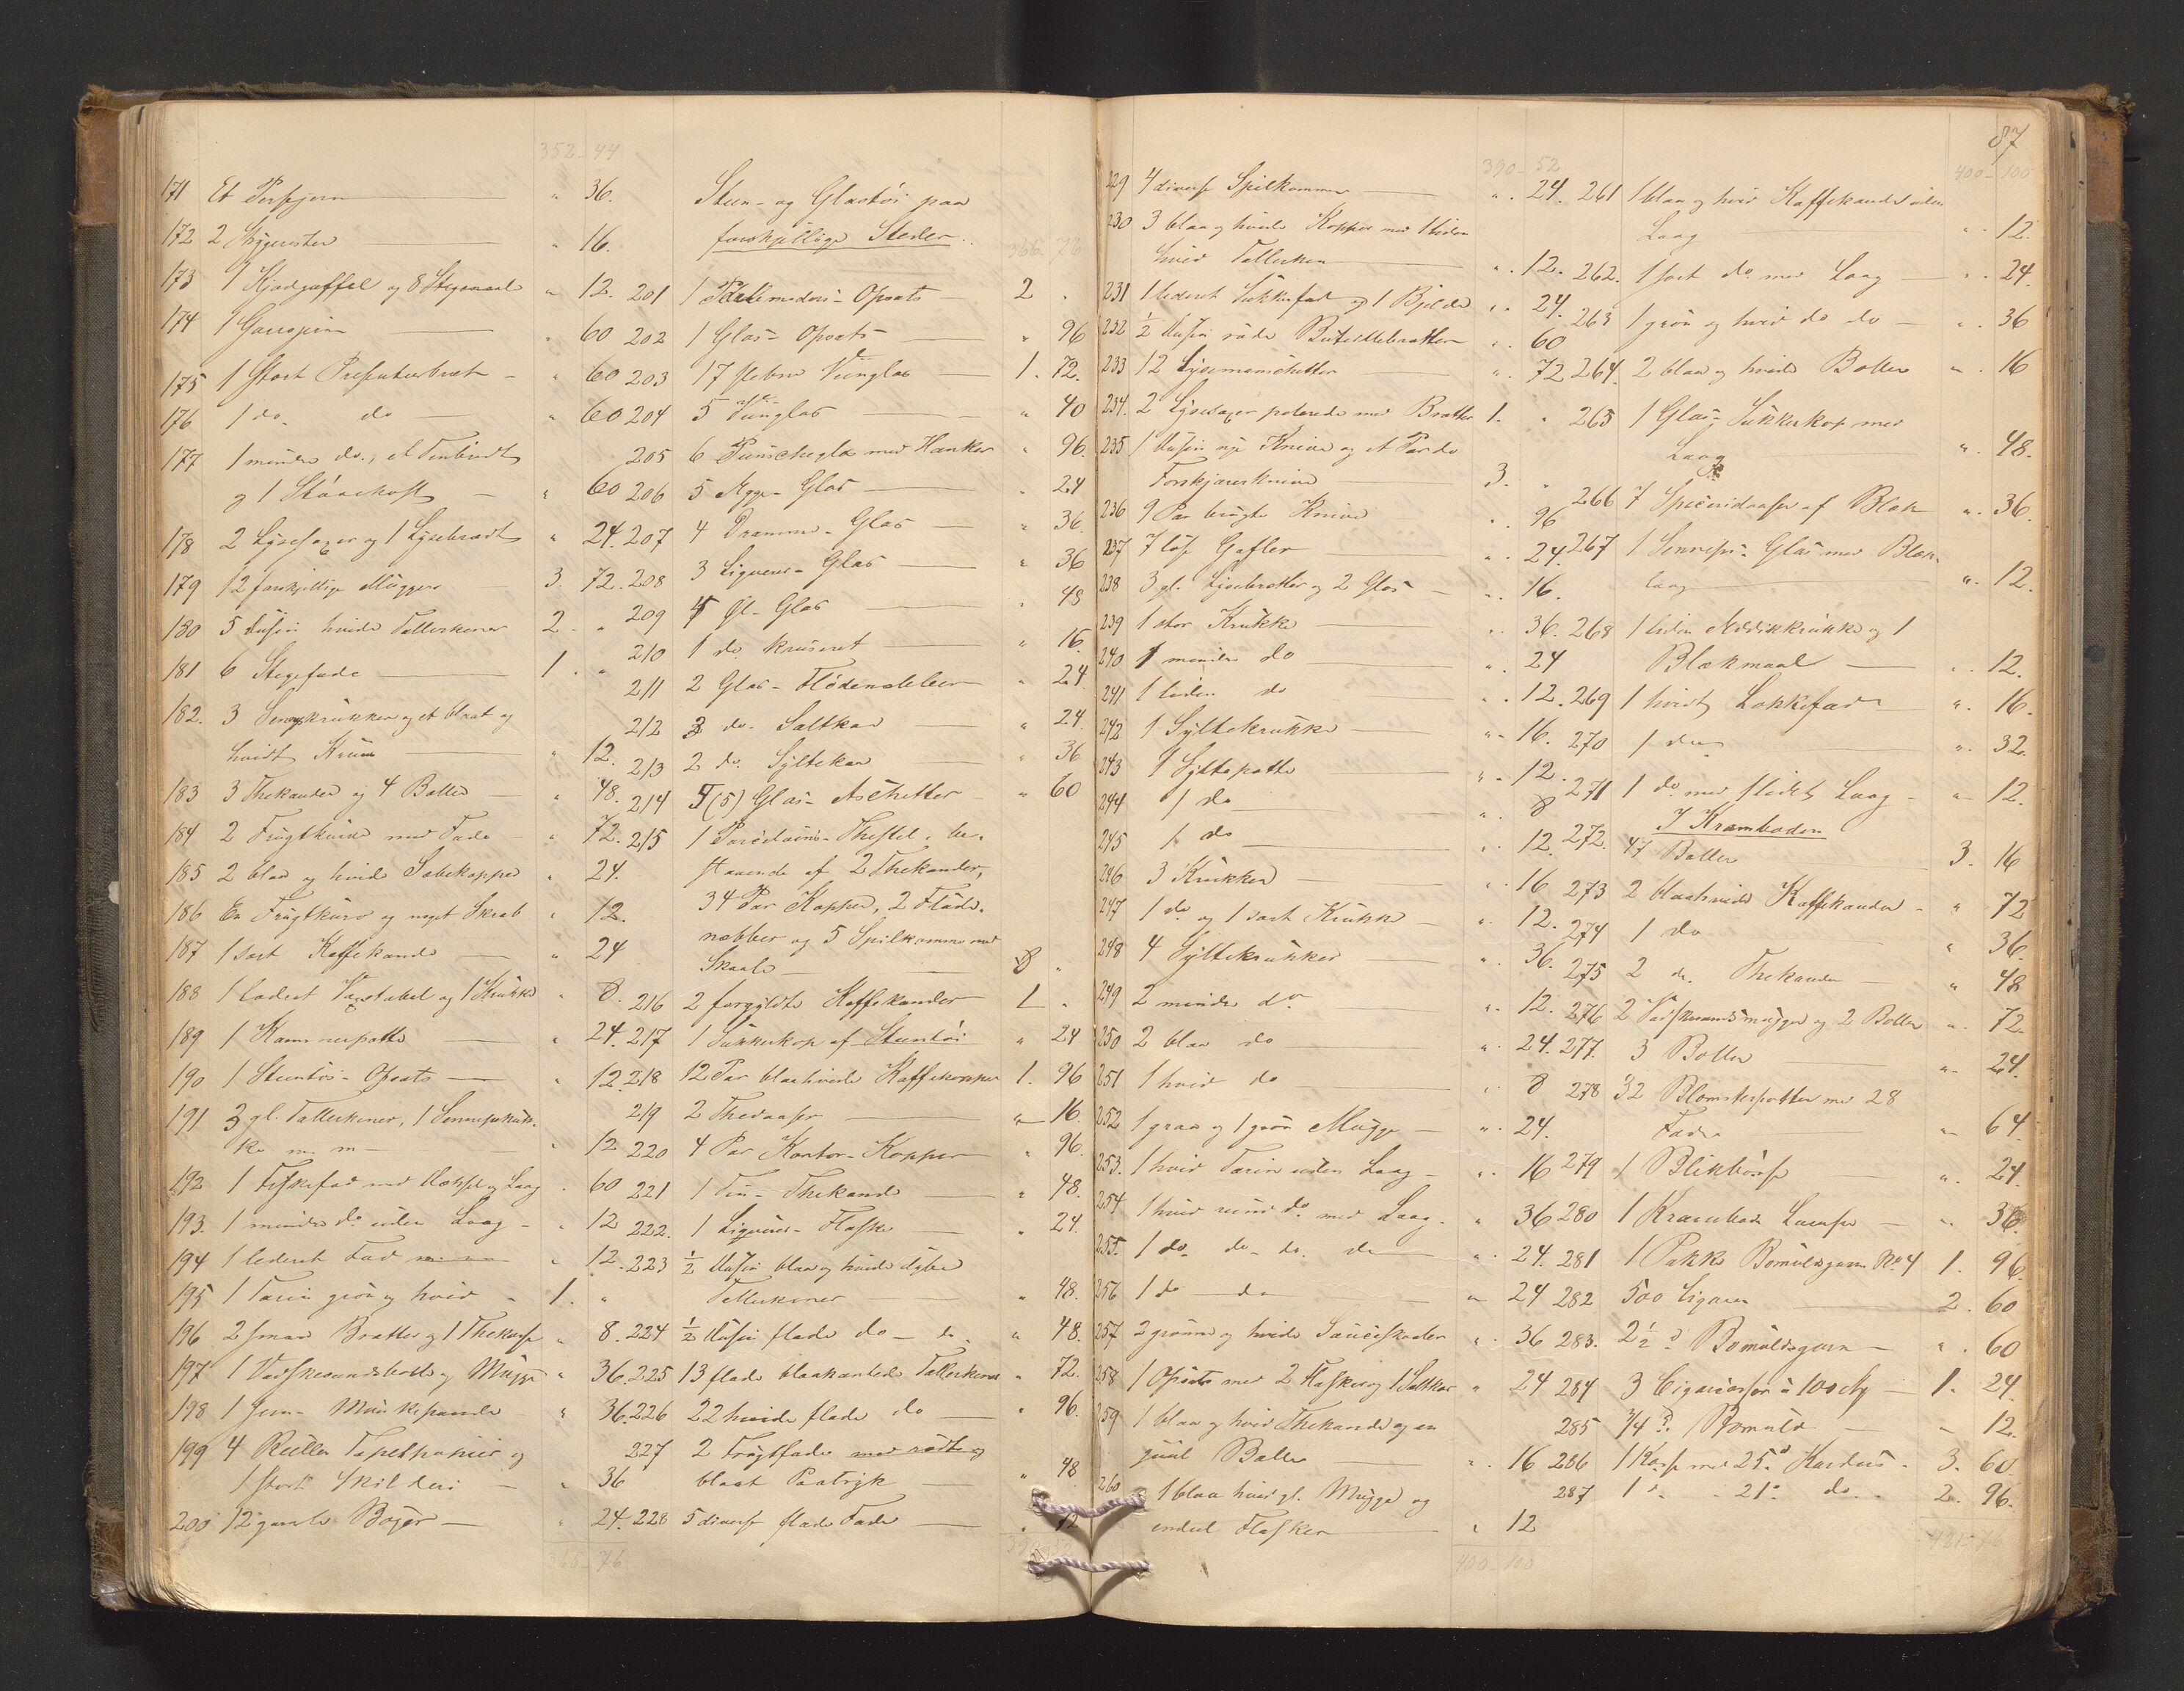 352-44
171 Et Persejern " 36.
172 2 " 16.
173 1 Kjødgaffel og 8 " 12.
174 1 " 60
175 1 stort Presenteerbræt " 60
176 1 do. do " 60
177 1 mindre do., et
og 1 Støvekost " 60
178 2 Lysesaxer og 1 Lysebrædt " 24.
179 12 forskjellige Mugger 3. 72.
180 5 dusin hvide Tallerkener 2. "
181 6 Stegefade 1. "
182. 3 og et blaat og
hvidt Kruus " 12.
183 3 Thekander og 4 Boller " 48.
184 2 Frugtkurve med Fade " 72.
185 2 blaa og hvide Sæbekopper " 24.
186 En Frugtkurv og noget Skrab " 12.
187 1 sort Kaffekande " 24
188 1 lederet og 1 Krukke " 8.
189 1 Kammerpotte " 24.
190 1 Steentøi-Opsats " 12.
191 3 gl. Tallerkener, 1 Sennepskruk-
ke m. m " 12
192 1 Fiskefad med og Laag " 60
193. 1 mindre do uden Laag " 12
194 1 lederet Fad " 12.
195 1 Tarin grøn og hvid 1. "
196 2 smaa Bratter og 1 " 8.
197 1 Vadskevandsbolle og Mugge " 36.
198 1 Jern- " 36.
199 4 Ruller Tapetpapiir og
1 stort Skilderi " 36
200 12 gamle Bøger " 24.
368-76

Steen- og Glastøi paa
forskjellige Steder.
366 76
201 1 Opsats 2 "
202 1 Glas-Opsats " 96
203 17 slebne Viinglas 1. 72.
204 5 Viinglas " 40
205 6 Punscheglas med Hanker " 96.
206 5 Ægge-Glas " 24
207 4 Dramme-Glas " 36
208 3 Liqueur-Glas " 36
209 5 Øl-Glas " 48
210 1 do. kruseret " 16
211 2 Glas- " 24
212 3 do. Saltkar " 24
213 2 do. Syltekar " 36
214 5 (5) Glas-Aschetter " 60
215 1 Porcelains-Thestel, be-
staaende af 2 Thekander,
34 Par Kopper, 2 Fløde-
nebber og 5 Spilkomme med
Skaale 8 "
216 2 forgyldte Kaffekander 1 "
217 1 Sukkerkop af Steentøi " 24
218 12 Par blaahvide Kaffekopper 1. 96
219 2 Thedaaser " 16.
220 4 Par Kontor-Kopper " 96.
221 1 Tin-Thekande " 48.
222. 1 Liqueur-Flaske " 24.
223 ½ dusin blaa og hvide dybe
Tallerkener " 48.
224 ½ dusin flade do - do. " 48.
225 13 flade blaakantede Tallerkener " 72.
226 22 hvide flade do " 96.
227 2 Frugtfade med rødt og
blaat Paatryk " 48
228 5 diverse flade Fade " 72

390-52
229 4 diverse Spilkommer " 24.
230 3 blaa og hvide Kopper med 1 liden
hvid Tallerken " 12.
231 1 lederet Sukkerfad og 1 Bjelde " 24.
232 ½ dusin røde Bouteillebratter " 60
233 12 Lysemanschetter " 72
234. 2 Lysesaxer polerede med Bratter 1. "
235 1 dusin nye Knive og et Par do
Forskjærerknive 3. "
236 9 Par brugte Knive " 96
237 7 løse Gafler " 24.
238 3 gl. Lysebratter og 2 Glas " 16.
239 1 stor Krukke " 36.
240 1 mindre do " 24
241 1 liden do " 12.
242 1 Syltekrukke " 16.
243 1 Syltepotte " 12.
244 1 do " 8
245 1 do " 12.
246 3 Krukker " 16
247 1 do og 1 sort Krukke " 12.
248 4 Syltekrukker " 36.
249 2 mindre do " 12.
250 2 blaa do " 24.
251 1 hvid do " 8
252 1 graa og 1 grøn Mugge " 24.
253. 1 hvid Tarin uden Laag " 16
254 1 hvid rund do med Laag " 36
255. 1 do. do- do. do " 24.
256 1 do do " 24
257 2 grønne og hvide Sauceskaaler " 36
258 1 Opsats med 2 Flasker og 1 Saltkar " 24
259 1 blaa og hvid Thekande og en
guul Bolle " 16
260 1 blaa hvid gl. Mugge og
endeel Flasker " 12
400-100

87
400-100
261 1 blaa og hvid Kaffekande uden
Laag " 12.
262. 1 sort do med Laag " 24.
263 1 grøn og hvid do do " 36
264. 2 blaa og hvide Boller " 16
265 1 Glas-Sukkerkop med
Laag " 48.
266 7 Specieridaaser af Blæk " 36.
267 1 Senneps-Glas med Blæk-
laag " 12.
268 1 liden Eddikkrukke og 1
Blækmaal " 12.
269 1 hvidt Lokkefad " 16.
270 1 do " 32.
271 1 do med slidt Laag " 12.
I Kramboden
272. 47 Boller 3. 16
273 2 blaahvide Kaffekander " 72
274 1 do " 36.
275 2 do. Thekander " 48
276 2 Vadskevandsmugger og 2 Boller " 72.
277. 3 Boller " 24.
278 32 Blomsterpotter med 28
Fade " 64.
279 1 Blikbøsse " 24.
280 1 Krambod Lampe " 36.
281 1 Pakke Bomuldsgarn No 4 1. 96.
282 500 Cigarer 2. 60
283. 2½ Bomuldsgarn " 60
284 3 Cigarkasser a 100 Stk 1. 24.
285 ¾ Bomuld " 12.
286 1 Kasse med 25 Kardus 3. 60.
287 1 do 21 do. 2. 96.
421-76